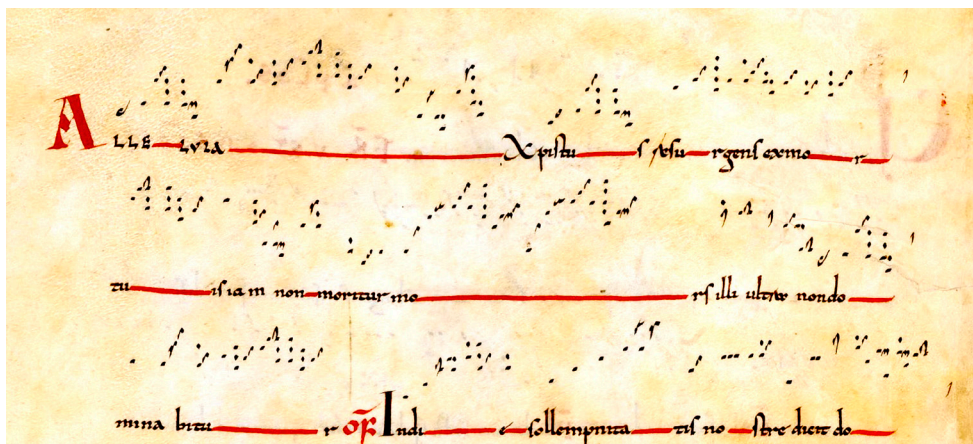 ALLELVIA Xpistus resurgens ex mor
tuis iam non moritur mors illi ultra non do
minabitur Of In die sollempnitatis nostre dicit do